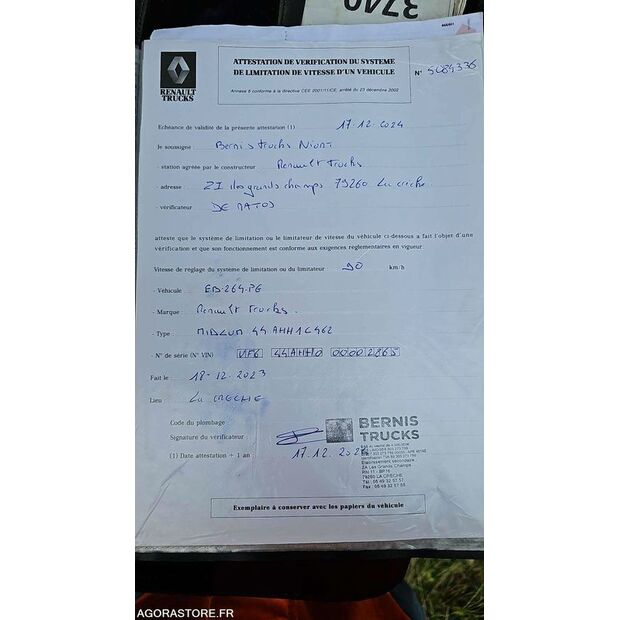 3740
RENAULT
TRUCKS
ATTESTATION DE VERIFICATION DU SYSTEME
DE LIMITATION DE VITESSE D'UN VEHICULE
N° 5084336
Annexe 5 conforme à la directive CEE 2001/11/CE, arrêté du 23 décembre 2002
Echéance de validité de la présente attestation (1) 17.12.2024
Je soussigné Bernis Trucks Niort
- station agréée par le constructeur Renault Trucks
- adresse : ZI les grands champs 79260 La crèche
- vérificateur DE MATOS
atteste que le système de limitation ou le limitateur de vitesse du véhicule ci-dessous a fait l'objet d'une
vérification et que son fonctionnement est conforme aux exigences réglementaires en vigueur.
Vitesse de réglage du système de limitation ou du limitateur 90 km/h
- Véhicule ED.264.PG
- Marque Renault Trucks.
- Type : MIDLUM 44AHH1C462
- N° de série (N° VIN) VF6 44AHH0 00002865
Fait le 18-12.2023
Lieu LA CRECHE
Code du plombage :
Signature du vérificateur
(1) Date attestation + 1 an 17.12.202
BERNIS
TRUCKS
Etablissement secondaire :
ZA Les Grands Champs
RN 11 - BP16
79260 LA CRÈCHE
Tél : 05 49 32 57 57
Fax : 05 49 32 57 55
Exemplaire à conserver avec les papiers du véhicule
AGORASTORE.FR